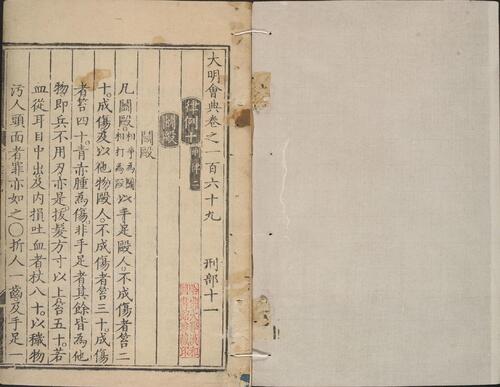 大明會典卷之一百六十九 刑部十一
律例十 刑律二
鬪毆
鬪毆
凡鬪毆相爭為鬪相打為毆以手足毆人不成傷者笞二
十。成傷及以他物毆人。不成傷者笞三十。成傷
者笞四十。青赤腫為傷。非手足者其餘皆為他
物即兵不用刃亦是。拔髮方寸以上。笞五十。若
血從耳目中出及內損吐血者杖八十。以穢物
污人頭面者罪亦如之○折人一齒及手足一